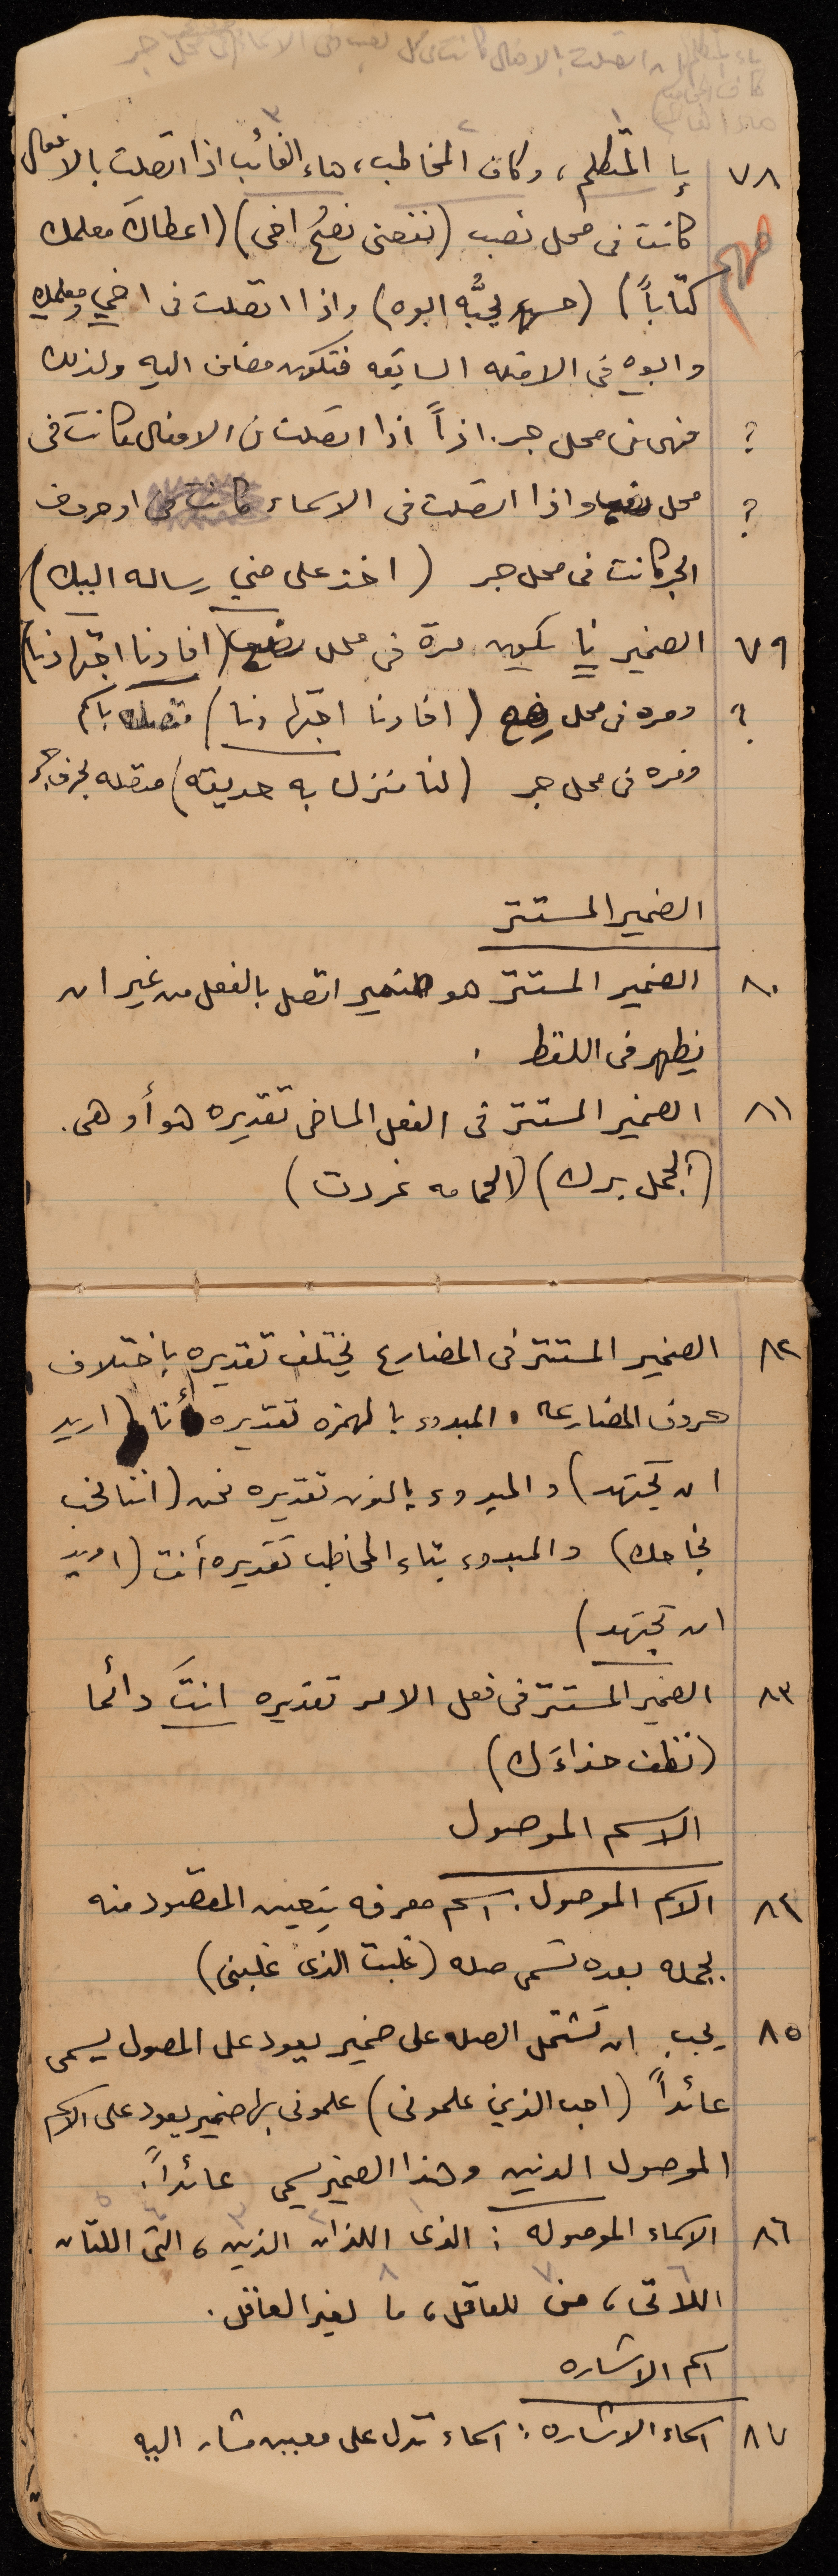 ياء المتكلم ان اتصلت بالافعال كانت في محل نصب وفي الاسماء في محل جر
كاف المخاطب
هاء الغائب
١ ٢ ٣
٧٨ يا المتكلم، وكاف المخاطب، هاء الغائب اذا اتصلت بالافعال
مهم كانت فى محل نصب (نفعنى نصحُ اخى) (اعطاكَ معلمك
كتاباً) (حسن يحبُّه ابوه) واذا اتصلت فى اخي ومعلمك
وابوه في الامثله السابقه فتكون مضاف اليه ولذلك
? فهى فى محل جر. اذاً اذا اتصلت فى الافعال كانت فى
? محل نصب واذا اتصلت فى الاسماء او حروف
الجر كانت فى محل جر (اخذ على مني رساله اليك)
٧٩ الضمير نا يكون مرة فى محل نصب (افادنا اجتهادنا)
? ومره فى محل رفع (افادنا اجتهادنا) متصله باسم
ومره فى محل جر (لنا منزل به حديقه) متصله بحرف جر
الضمير المستتر
٨٠ الضمير المستتر هو ضمير اتصل بالفعل من غير ان
يظهر فى اللفظ .
٨١ الضمير المستتر فى الفعل الماضى تقديره هو أو هى.
(الجمل برك) (الحمامه غردت)
٨٢ الضمير المستتر فى المضارع يختلف تقديره باختلاف
حروف المضارعه . المبدوء بالهمزه تقديره أنا (اريد
ان تجتهد) والمبدوء بالنون تقديره نحن (اننا نحب
نجاحك) والمبدوء بتاء المخاطب تقديره أنت (اريد
ان تجتهد)
٨٣ الضمير المستتر فى فعل الامر تقديره انتَ دائما
(نظف حذاءَك)
الاسم الموصول
٨٤ الاسم الموصول: اسم معرفه يتعين المقصود منه
بجمله بعده تسمى صله (غلبت الذى غلبنى)
٨٥ يجب ان تشتمل الصله على ضمير يعود على المصول يسمى
عائداً (احب الذين علمونى) علمونى بها ضمير يعود على الاسم
الموصول الذين وهذا الضمير يسمى عائداً.
١ ٢ ٣ ٤ ٥
٨٦ الاسماء الموصوله: الذى اللذان الذين، التى اللتان
٦ ٧ ٨
اللاتى، من للعاقل، ما لغير العاقل.
اسم الاشاره
٨٧ اسماء الاشاره: اسماء تدل على معين مشار اليه